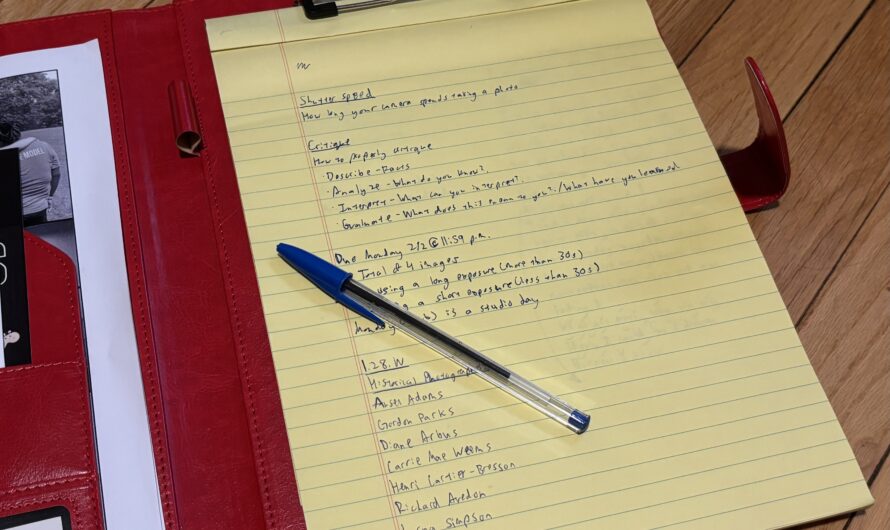 MODEL
Shutter speed
How long your camera spends taking a photo
Critique
How to properly critique
· Describe - Facts
· Analyze - What do you know?
· Interpret - What can you interpret?
· Evaluate - What does this mean to you? / What have you learned
Due Monday 2/2 @ 11:59 p.m.
Total of 4 images
using a long exposure (more than 30s)
a short exposure (less than 30s)
Monday is a studio day
1.28.W
Historical
Ansel Adams
Gordon Parks
Diane Arbus
Carrie Mae Weems
Henri Cartier-Bresson
Richard Avedon
Simpson